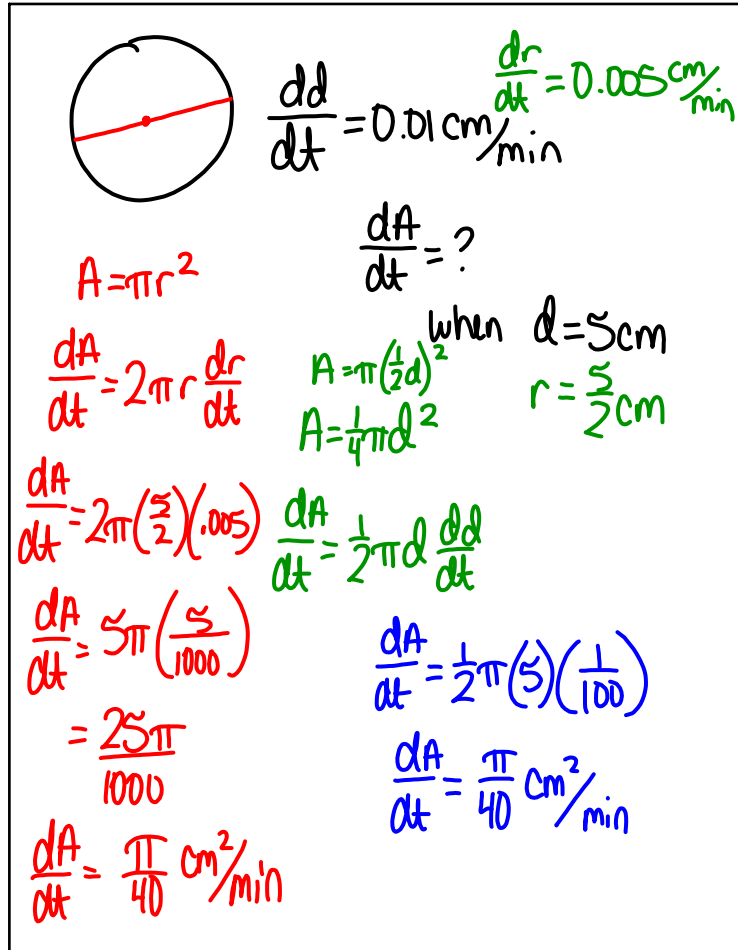 dd/dt = 0.01 cm/min
dr/dt = 0.005 cm/min
dA/dt = ?
when d = 5cm
r = 5/2 cm
A = πr²
dA/dt = 2πr dr/dt
dA/dt = 2π(5/2)(.005)
dA/dt = 5π(5/1000)
= 25π/1000
dA/dt = π/40 cm²/min
A = π(1/2 d)²
A = 1/4 πd²
dA/dt = 1/2 πd dd/dt
dA/dt = 1/2 π(5)(1/100)
dA/dt = π/40 cm²/min